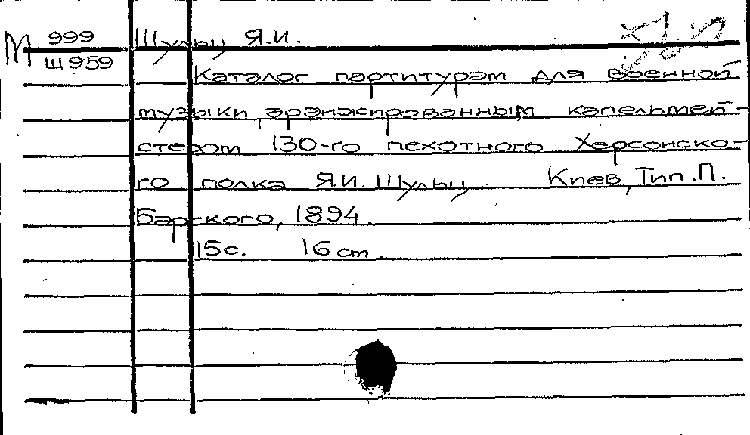 М 999 Шульц Я.И.
Ш959
Каталог партитурам для военной
музыки, аранжированным капельмей-
стером 130-го пехотного Херсонско-
го полка Я.И. Шульц Киев, Тип. П.
Барского, 1894.
15с. 16 cm.